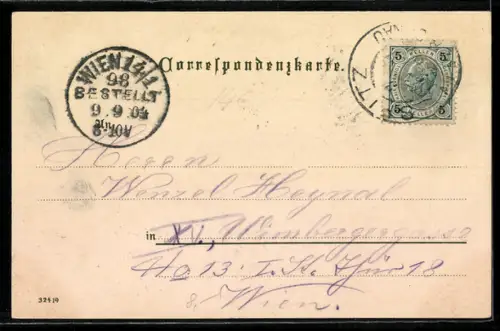 WIEN 14/1
98
BESTELLT
9.9.03
8-10V
Correspondenzkarte.
5 5
5 5
Herrn
Wenzel Heynal
in XV., Wimbergergasse
No 13. I. St. Thür 18
Wien.
32519